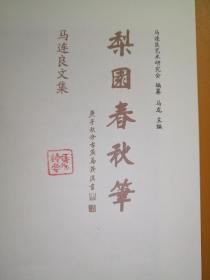 马连良艺术研究会 编纂 马龙 主编
梨园春秋笔
马连良文集